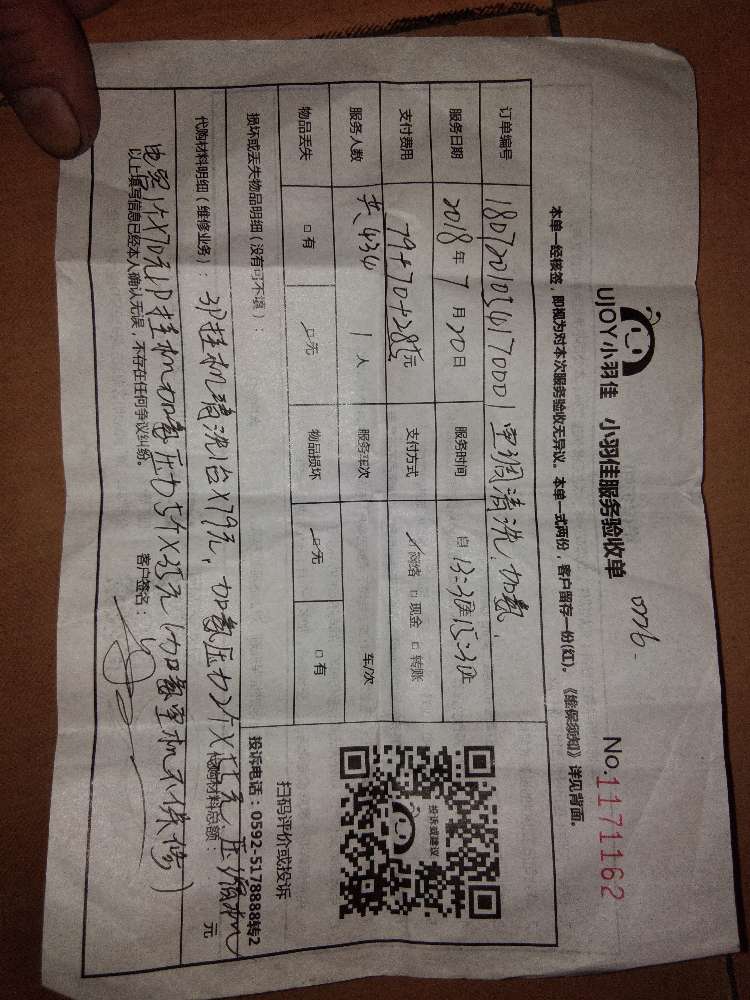 UJOY小羽佳 小羽佳服务验收单 0006.
No.1171162
本单一经核签，即视为对本次服务验收无异议。本单一式两份，客户留存一份(红)。《维保须知》详见背面。
订单编号 空调清洗、加氨、
服务日期 2018年7月20日 服务时间 自
支付费用 79+70+285元 支付方式 网络 □现金 □转账
共434
服务人数 1人 服务车次 车/次
物品丢失 □有 □无 物品损坏 □无 □有
投诉或建议
扫码评价或投诉
投诉电话：0592-5178888转2
损坏或丢失物品明细(没有可不填)：
代购材料明细(维修业务)：3P挂机清洗1台X79元，加氨压力2个X55元、压缩机
代购材料总额： 元
电容1个X70元1P挂机加氨压力5个X35元(加氨空机不保修)
以上填写信息已经本人确认无误，不存在任何争议纠纷。 客户签名：